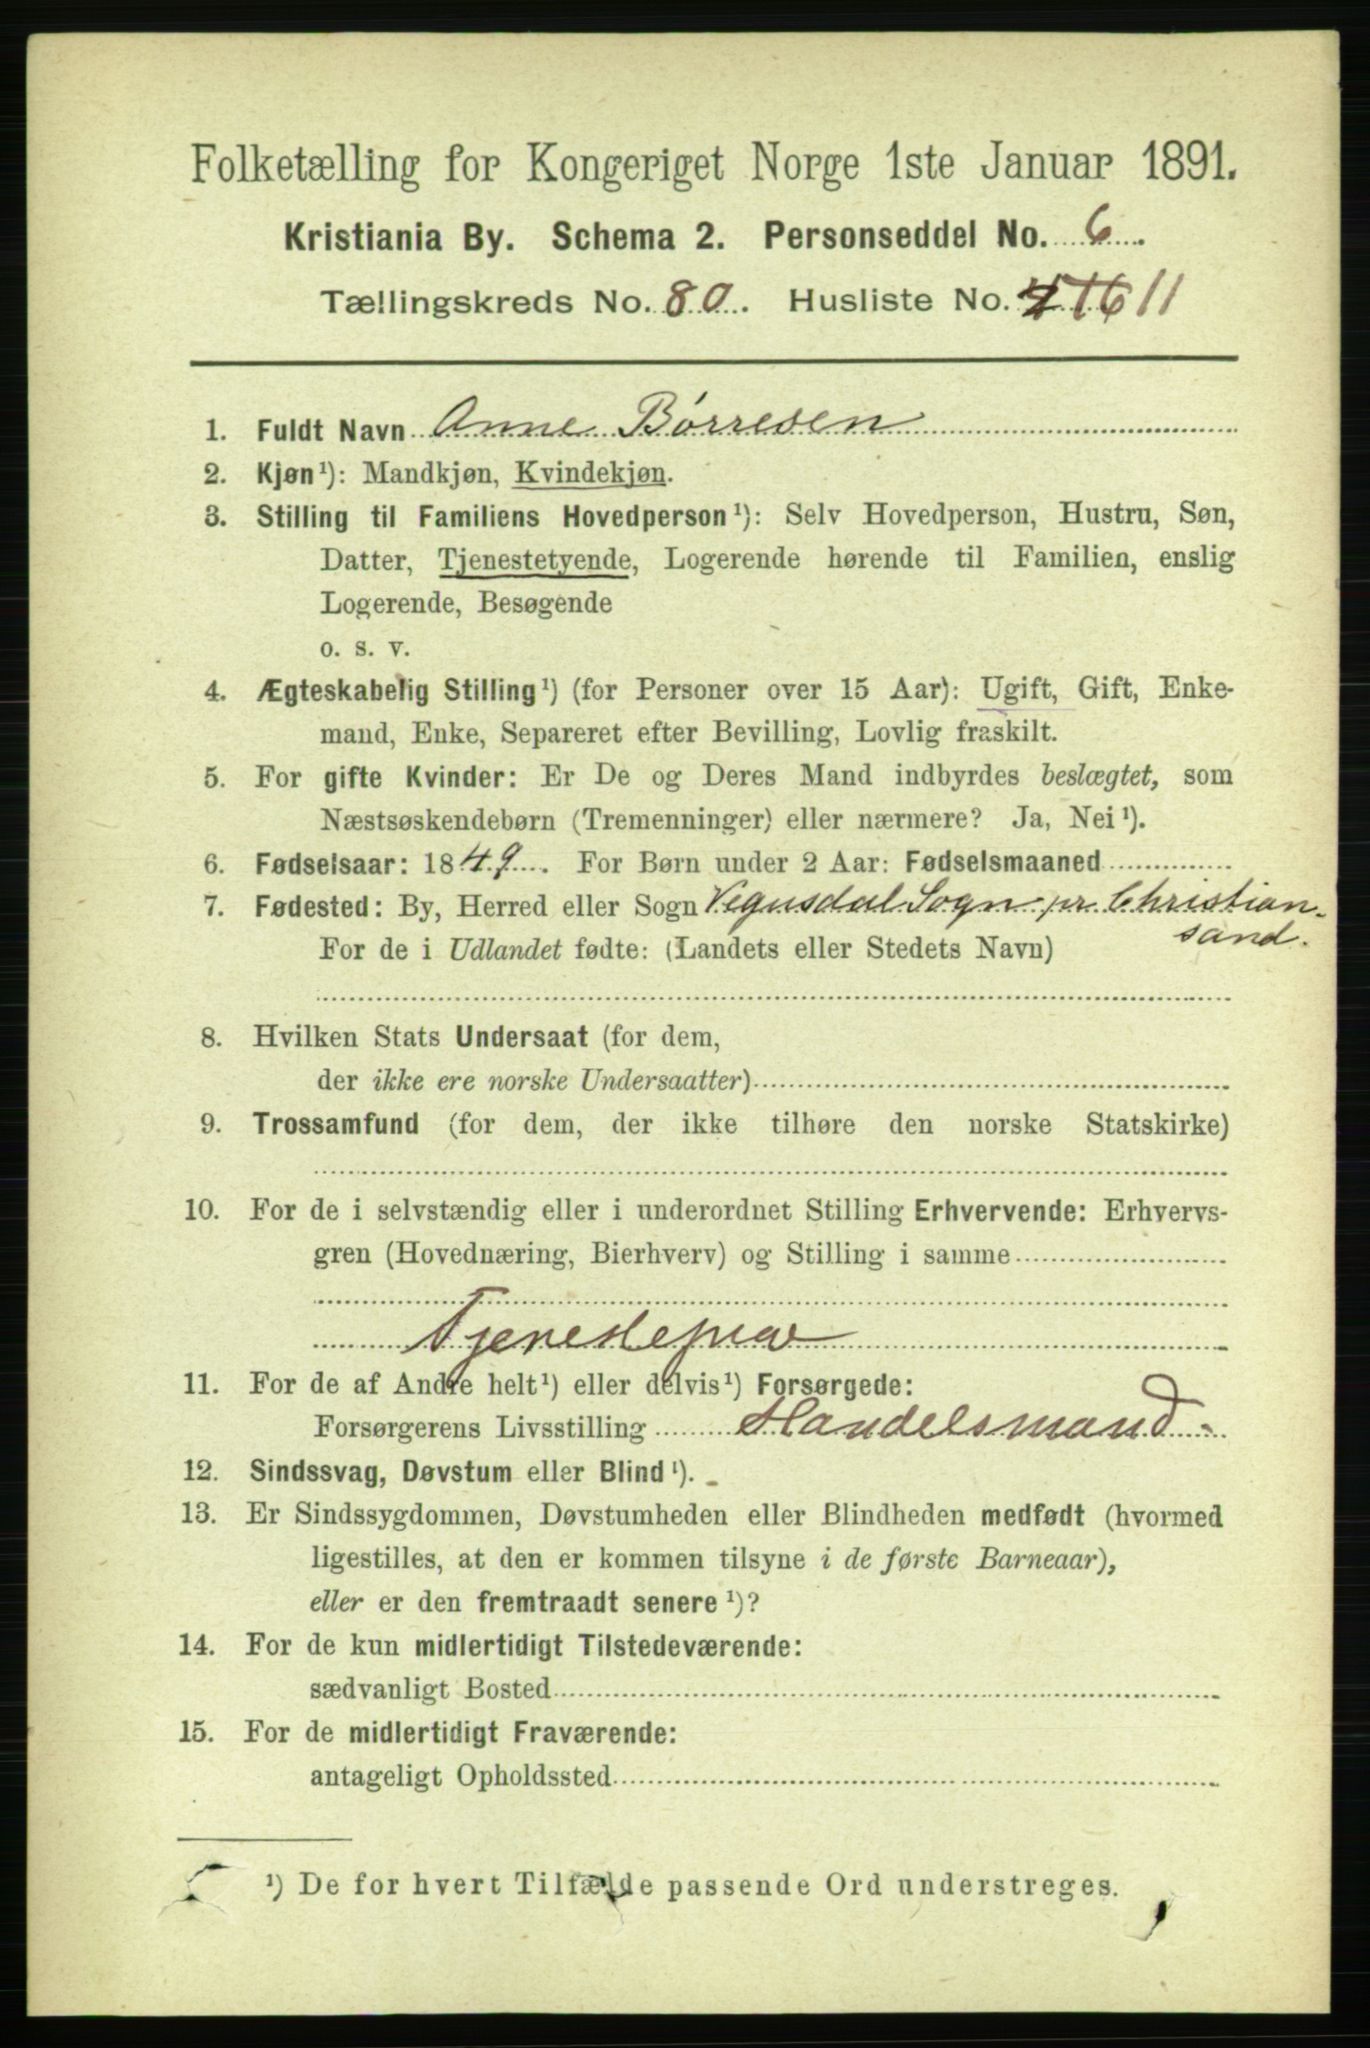 Folketælling for Kongeriget Norge 1ste Januar 1891.
Kristiania By. Schema 2. Personseddel No. 6.
Tællingskreds No. 80. Husliste No. 11
1. Fuldt Navn Anne Børresen
2. Kjøn¹): Mandkjøn, Kvindekjøn.
3. Stilling til Familiens Hovedperson¹): Selv Hovedperson, Hustru, Søn,
Datter, Tjenestetyende, Logerende hørende til Familien, enslig
Logerende, Besøgende
o. s. v.
4. Ægteskabelig Stilling¹) (for Personer over 15 Aar): Ugift, Gift, Enke-
mand, Enke, Separeret efter Bevilling, Lovlig fraskilt.
5. For gifte Kvinder: Er De og Deres Mand indbyrdes beslægtet, som
Næstsøskendebørn (Tremenninger) eller nærmere? Ja, Nei¹).
6. Fødselsaar: 1849. For Børn under 2 Aar: Fødselsmaaned
7. Fødested: By, Herred eller Sogn Vegusdal Sogn pr Christian-
sand.
For de i Udlandet fødte: (Landets eller Stedets Navn)
8. Hvilken Stats Undersaat (for dem,
der ikke ere norske Undersaatter)
9. Trossamfund (for dem, der ikke tilhøre den norske Statskirke)
10. For de i selvstændig eller i underordnet Stilling Erhvervende: Erhvervs-
gren (Hovednæring, Bierhverv) og Stilling i samme
Tjenestepige
11. For de af Andre helt¹) eller delvis¹) Forsørgede:
Forsørgerens Livsstilling Handelsmand
12. Sindssvag, Døvstum eller Blind¹).
13. Er Sindssygdommen, Døvstumheden eller Blindheden medfødt (hvormed
ligestilles, at den er kommen tilsyne i de første Barneaar),
eller er den fremtraadt senere¹)?
14. For de kun midlertidigt Tilstedeværende:
sædvanligt Bosted
15. For de midlertidigt Fraværende:
antageligt Opholdssted
¹) De for hvert Tilfælde passende Ord understreges.